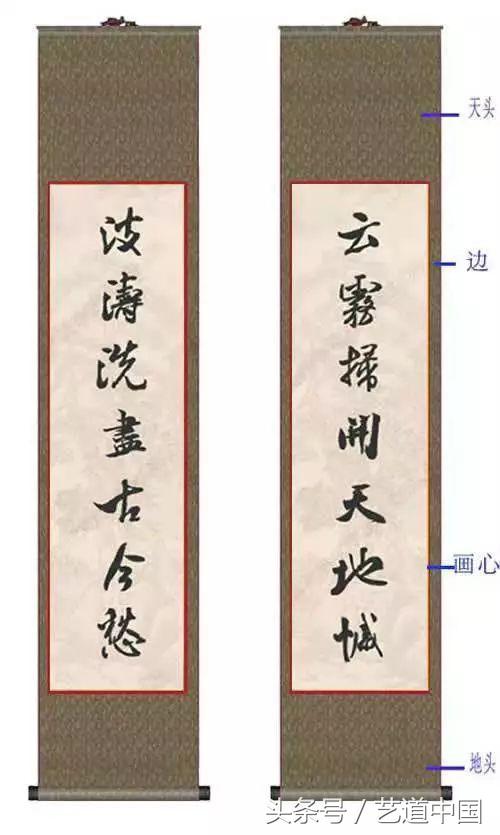 云霧掃開天地憾
波濤洗盡古今愁
天头
边
画心
地头
头条号／艺道中国